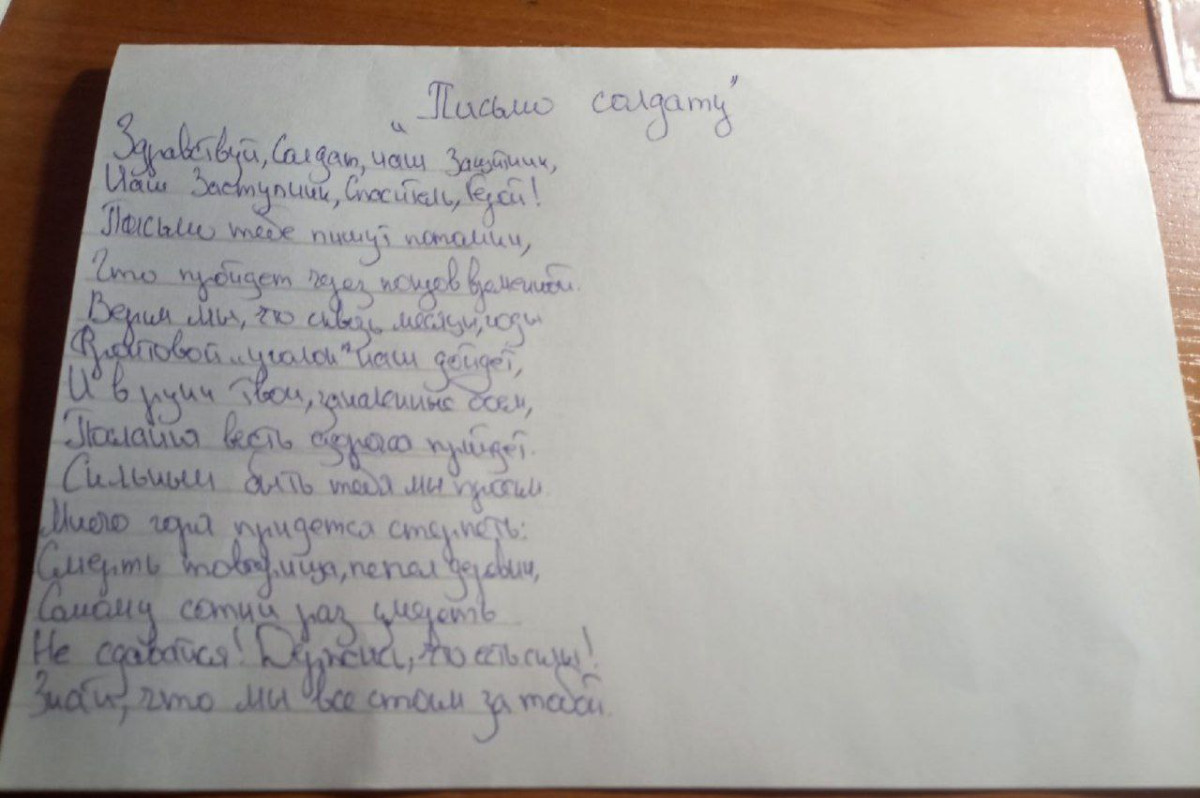 "Письмо солдату"
Здравствуй, Солдат, наш Защитник,
Наш Заступник, Спаситель, Герой!
Письмо тебе пишут потомки,
Что пройдет через поков временной.
Верим мы, что сквозь месяцы, годы
Фронтовой „уголок" наш дойдет,
И в руки твои, закаленные боем,
Послания весть скоро придет.
Сильным быть тебя мы просим
Много горя придется стерпеть:
Смерть товарища, пепел деревни,
Самому сотни раз умереть
Не сдавайся! Держись, что есть силы!
Знай, что мы все стоим за тобой.